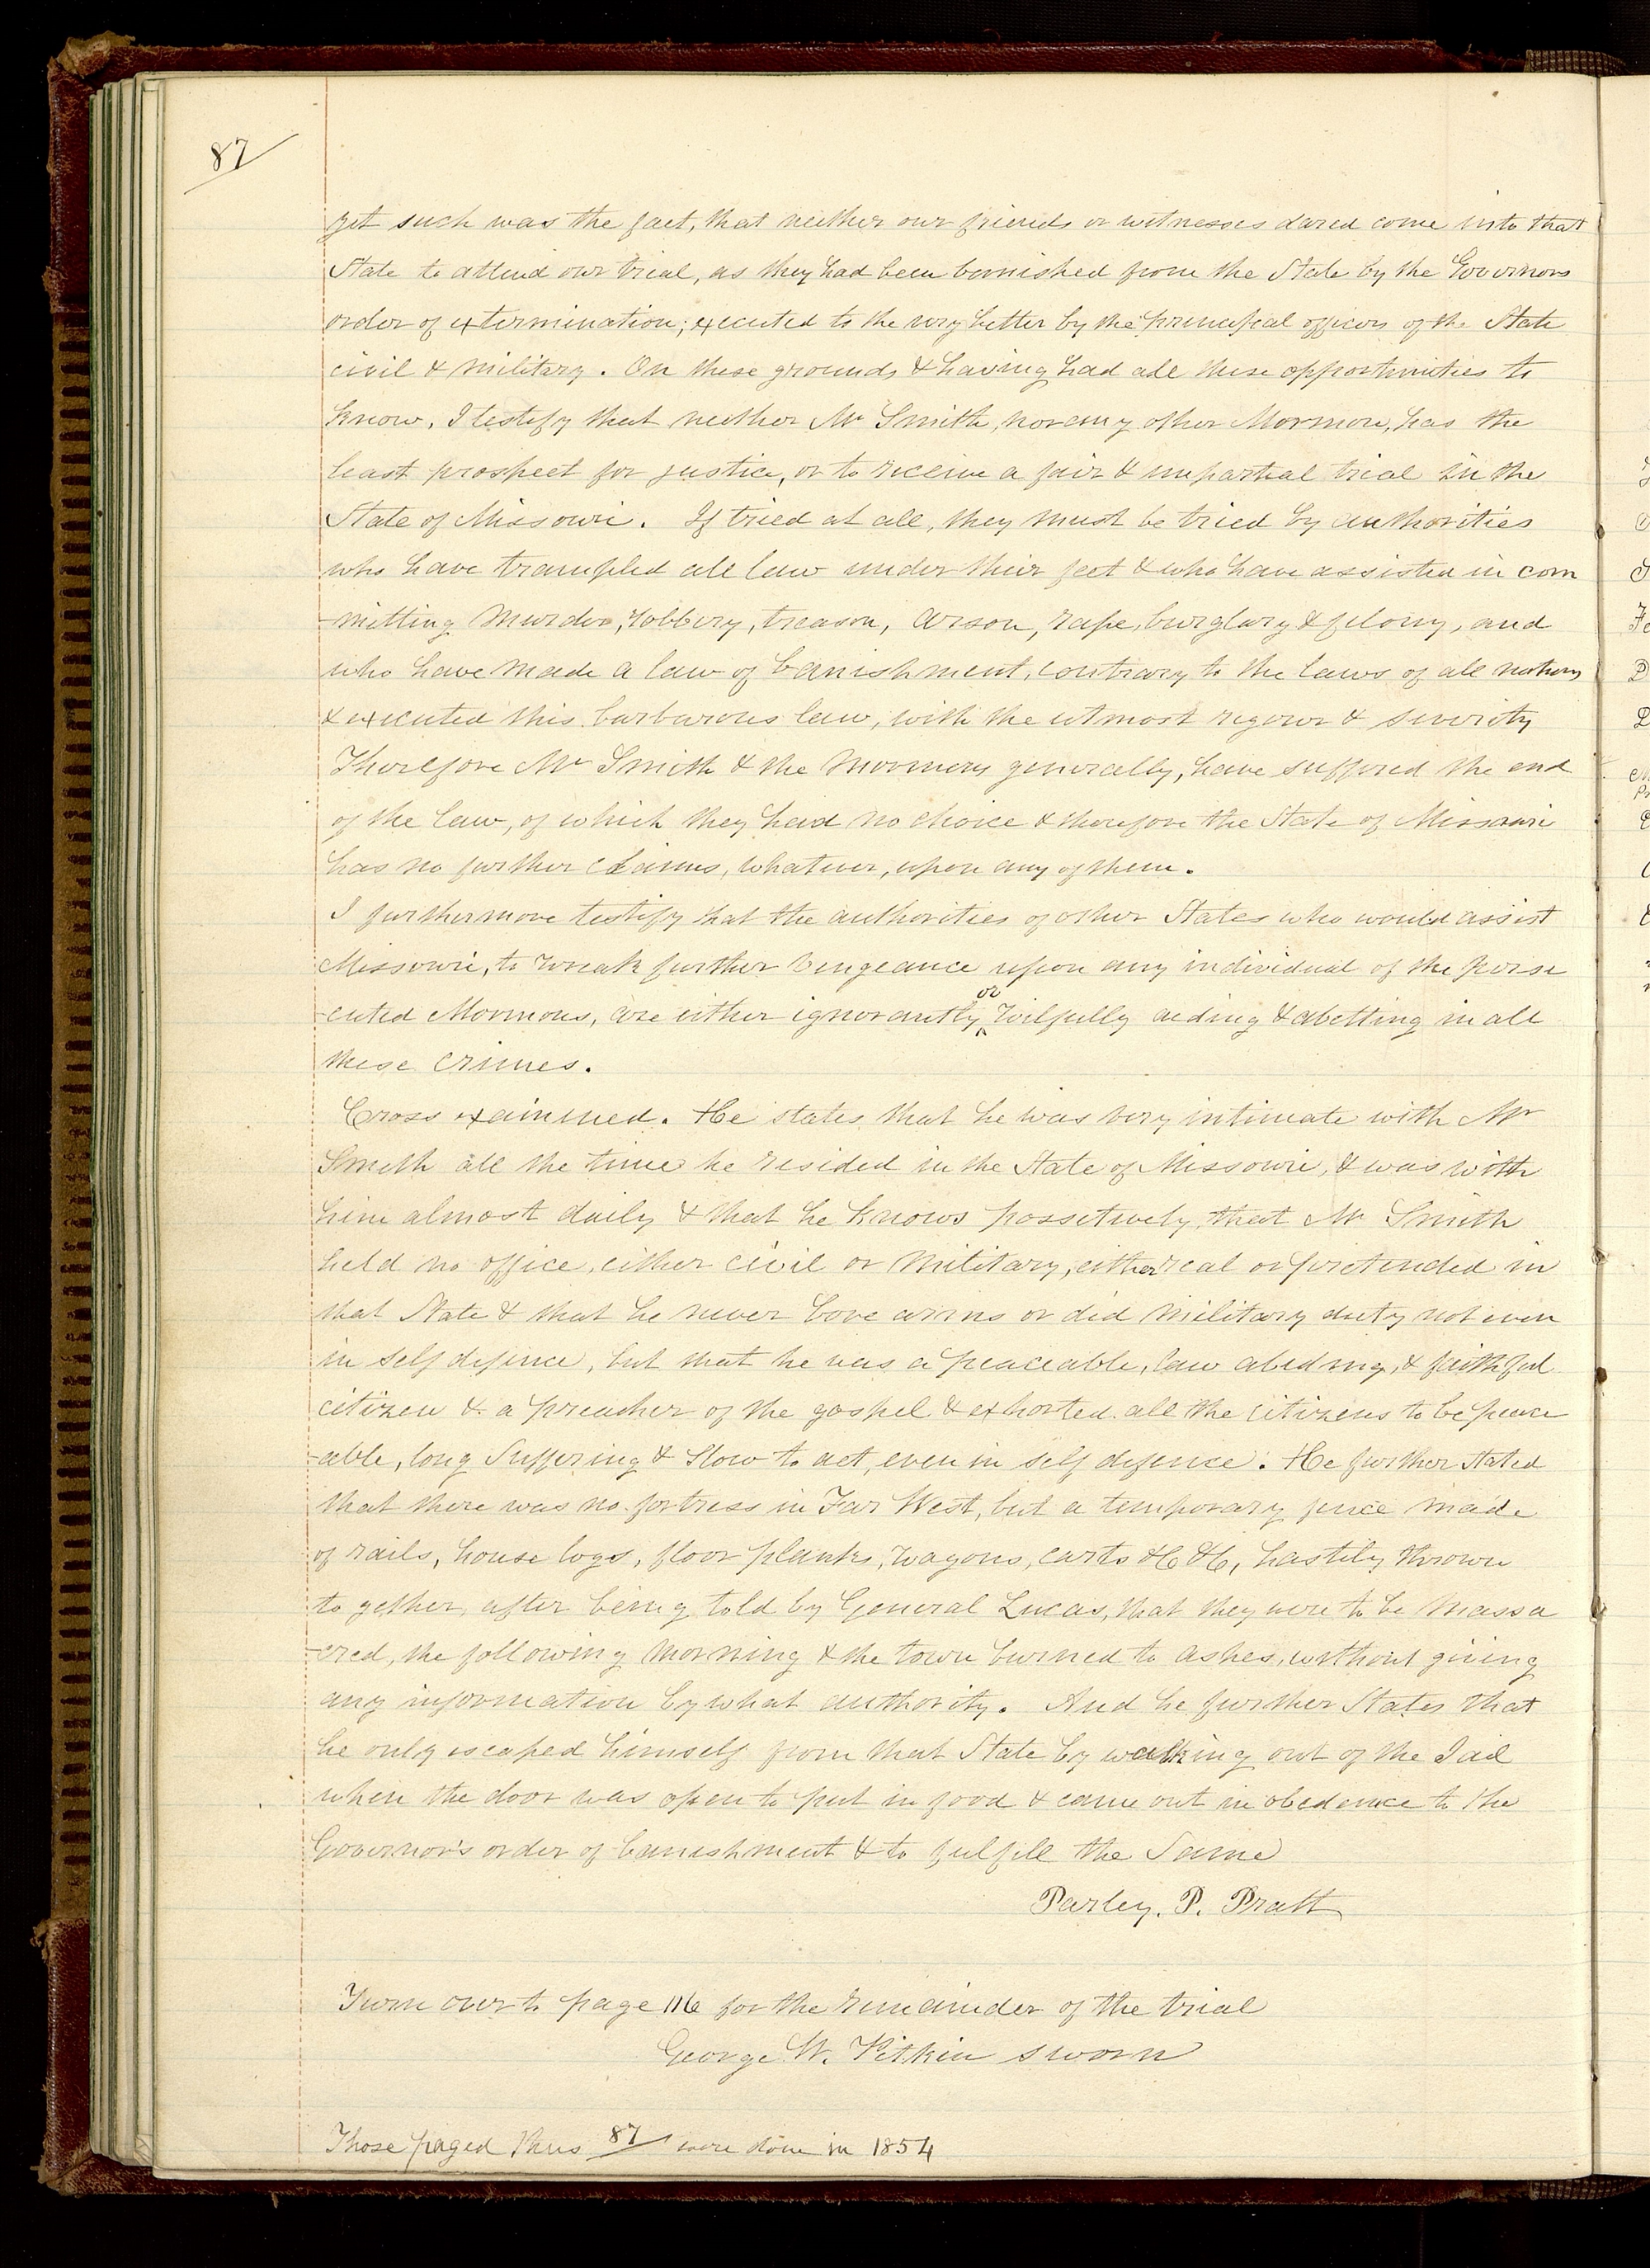 87
yet such was the fact, that neither our friends or witnesses dared come into that
State to attend our trial, as they had been bannished from the State by the Governors
order of extermination; executed to the very letter by the principal officers of the State
civil & military. On these grounds & having had all these opportunities to
know, I testify that neither Mr Smith, nor any other Mormon, has the
least prospect for justice, or to receive a fair & impartial trial in the
State of Missouri. If tried at all, they must be tried by authorities
who have trampled all law under their feet & who have assisted in com
-mitting Murder, robbery, treason, arson, rape, burglary & felony, and
who have made a law of banishment, contrary to the laws of all nations
& executed this barbarous law, with the utmost rigour & severity
Therefore Mr Smith & the Mormons generally, have suffered the end
of the law, of which they had no choice & therefore the State of Missouri
has no further claims, whatever, upon any of them.
I furthermore testify that the authorities of other States who would assist
Missouri, to wreak further vengeance upon any individual of the perse
-cuted Mormons, are either ignorantly or wilfully aiding & abetting in all
these crimes.
Cross examined. He states that he was very intimate with Mr
Smith all the time he resided in the State of Missouri, & was with
him almost daily & that he knows possitively that Mr Smith
held no office, either civil or Military, either real or pretended in
that State & that he never bore arms or did Military duty not even
in self defence, but that he was a peaceable, law abiding, & faithful
citizen & a preacher of the gospel & exhorted all the citizens to be peace
-able, long Suffering & slow to act, even in self defence. He further stated
that there was no fortress in Far West, but a temporary fence made
of rails, house logs, floor planks, wagons, carts &c &c, hastily thrown
to gether, after being told by General Lucas, that they were to be massa
-cred, the following morning & the town burned to ashes, without giving
any information by what authority. And he further States that
he only escaped himself from that State by walking out of the Jail
when the door was open to put in food & came out in obedence to the
Governor's order of bannishment & to fulfill the Same
Parley. P. Pratt
Turn over to page 116 for the remainder of the trial
George W. Pitkin sworn
Those paged thus 87 were done in 1854